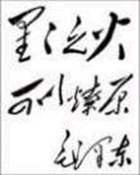 星之火
可以燎原
毛泽东